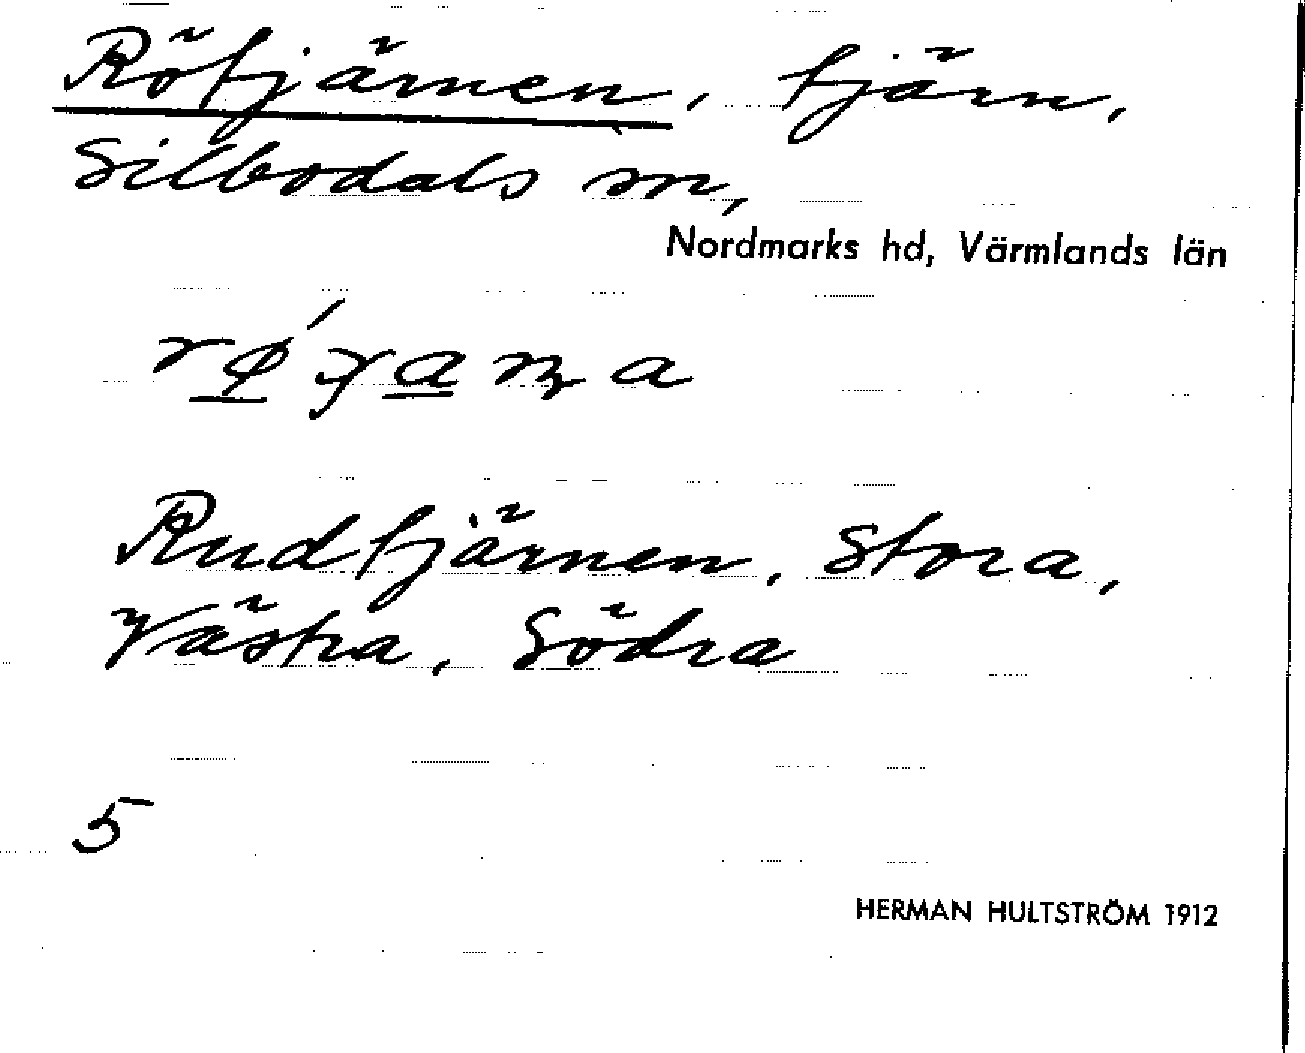 Rötjärnen, tjärn,
Silbodals sn,
Nordmarks hd, Värmlands län
Rudtjärnen, Stora,
Västra, Södra
5
HERMAN HULTSTRÖM 1912